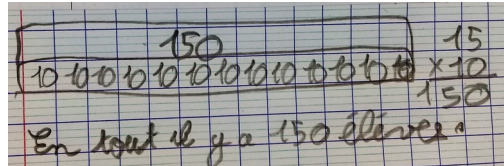 150 15
10 10 10 10 10 10 10 10 10 10 10 10 10 ×10
150
En tout il y a 150 élèves.